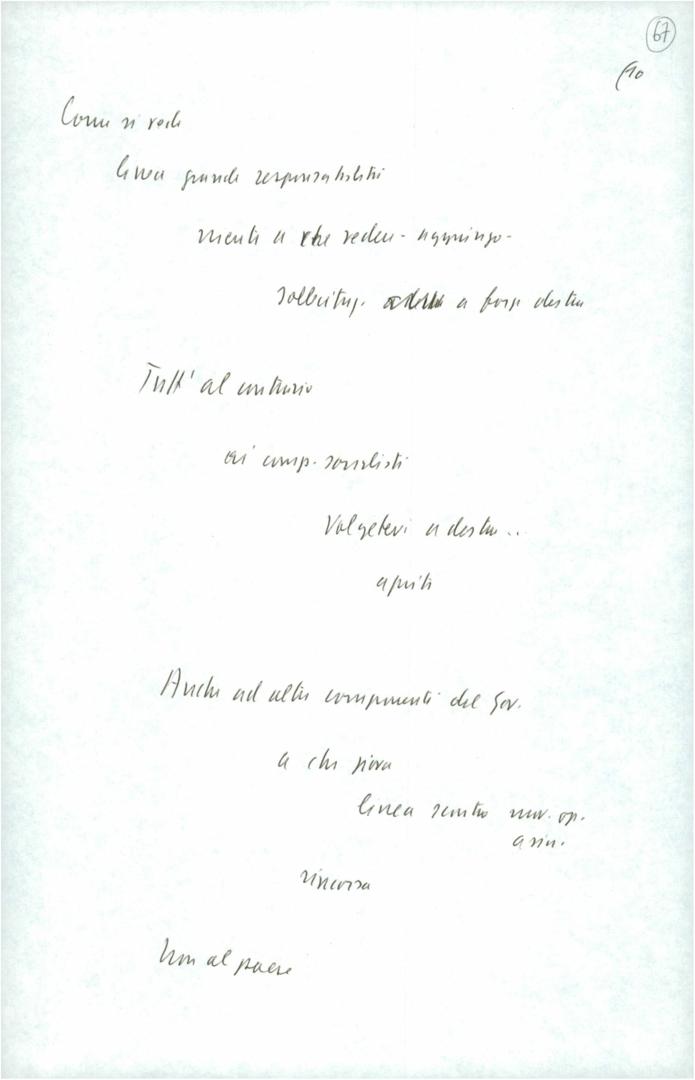 67
Come si vede
linea grande responsabilità
niente a che vedere - aggiungo -
sollecitaz. a forze destra
Tutt' al contrario
comp. socialisti
Volgetevi a destra ..
aprite
Anche ad altri componenti del Gov.
a chi giova
linea scontro mov. op.
rincorsa
Non al paese